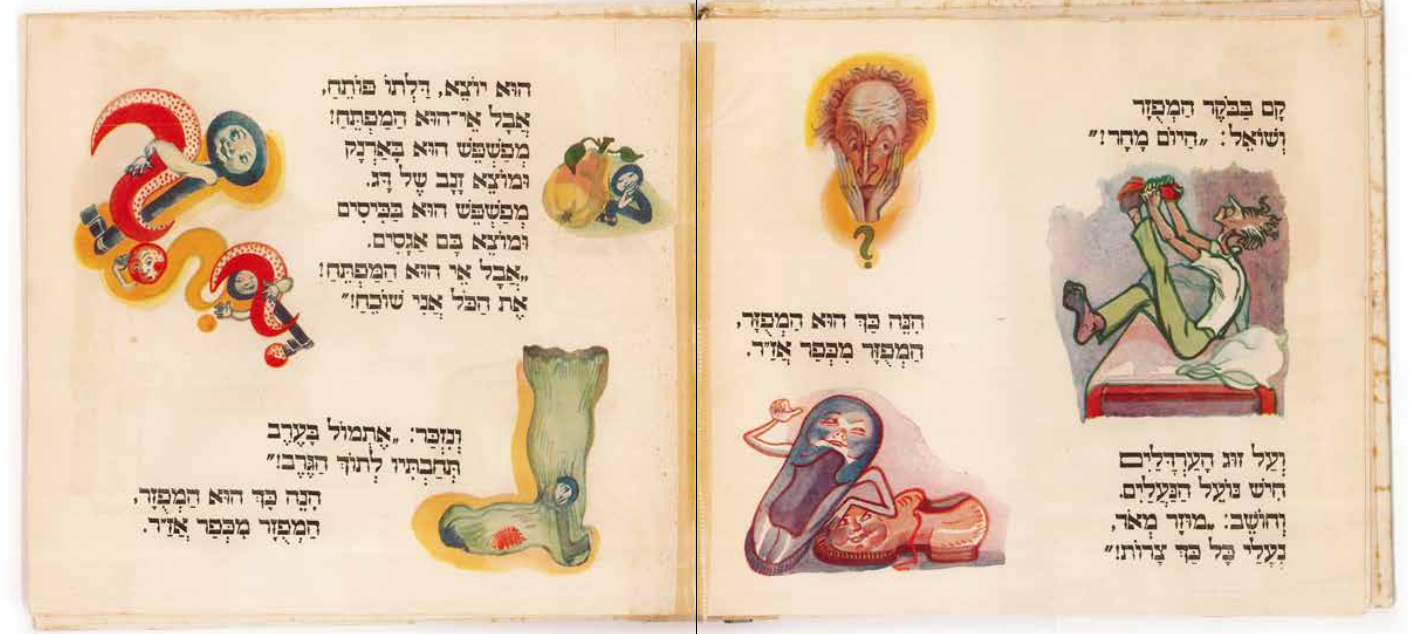 קָם בַּבֹּקֶר הַמְפֻזָּר
וְשׁוֹאֵל: „הַיּוֹם מָחָר?”
וְעַל זוּג הָעַרְדָּלַיִם
חִישׁ נוֹעֵל הַנַּעֲלַיִם.
וְחוֹשֵׁב: „מוּזָר מְאֹד,
נְעָלַי כָּל כַּךְ צָרוֹת!”
?
הִנֵּה כַּךְ הוּא הַמְפֻזָּר,
הַמְפֻזָּר מִכְּפַר אֲזַ״ר.
הוּא יוֹצֵא, דַּלְתּוֹ פּוֹתֵחַ,
אֲבָל אֵי־הוּא הַמַּפְתֵּחַ?
מְפַשְׁפֵּשׁ הוּא בָּאַרְנָק
וּמוֹצֵא זְנַב שֶׁל דָּג.
מְפַשְׁפֵּשׁ הוּא בַּכִּיסִים
וּמוֹצֵא בָּם אַגָּסִים.
„אֲבָל אֵי הוּא הַמַּפְתֵּחַ?
אֶת הַכֹּל אֲנִי שׁוֹכֵחַ!”
וְנִזְכַּר: „אֶתְמוֹל בָּעֶרֶב
תְּחַבְתִּיו לְתוֹךְ הַגֶּרֶב!”
הִנֵּה כַּךְ הוּא הַמְפֻזָּר,
הַמְפֻזָּר מִכְּפַר אֲזַ״ר.